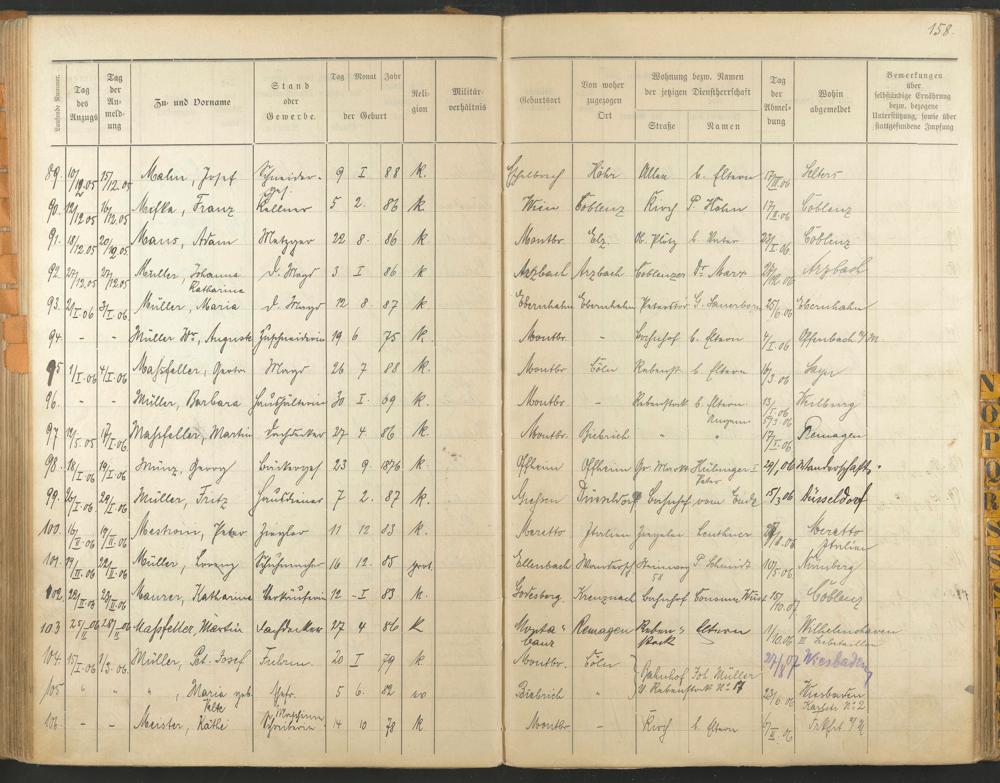 158.
Laufende Nummer.
Tag des Anzugs
Tag der Anmeldung
Zu- und Vorname
Stand oder Gewerbe.
Tag Monat Jahr
der Geburt
Religion
Militärverhältnis
Geburtsort
Von woher zugezogen Ort
Wohnung bezw. Namen der jetzigen Dienstherrschaft
Straße Namen
Tag der Abmeldung
Wohin abgemeldet
Bemerkungen über selbständige Ernährung bezw. bezogene Unterstützung, sowie über stattgefundene Impfung
89. 10/12 05 15/12.05 Malm, Josef Schneider- 9 I 88 k. Höhr Allee b. Eltern 17/III.06 Selters
90. 12/12 05 16/12.05 Franz Kellner 5 2. 86 k. Wien Coblenz Kirch P. Hahn 17/II.06 Coblenz
91. 18/12.05 20/12.05. Maus, Adam Metzger 22 8. 86 k Montbr. Elz Pl. Platz b. Vater 23/I.06 Coblenz
92. 27/12.05 27/12.05 Müller, Johanna Katharina d. Magd 3 I 86 k Arzbach Arzbach Coblenzer Dr. Marx Arzbach
93. 2/I.06 3/I.06 Müller, Maria d. Magd 12 8. 87 k. Ebernhahn Ebernhahn G. Sauerborn 25/6.06 Ebernhahn
94. - - Müller Ww, Auguste Zuschneiderin 19 6 75 k. Montbr. - Bahnhof b. Eltern 4/I.06 Offenbach a/M.
95 1/I.06 4/I.06 Maßfeller, Gertr. Magd 26 7 88 k. Montbr Cöln Rebenst b. Eltern 16/3.06 Sayn
96. - - Müller, Barbara Haushälterin 30 I. 69 k. Montbr - Rebenstock b. Eltern 13/I.06 Weilburg
97. Maßfeller, Martin Dachdecker 27 4 86 k. Montbr. Biebrich " " 17/I.06 Remagen
98. 18/I.06 19/I.06 Münz, Georg 23 9. 1876 k. Ofheim Ofheim Gr. Markt Hülinger I Peter 29/I.06 Wanderschaft.
99. 29/I.06 Müller, Fritz 7 2. 87 k. Gießen Düsseldorf Bahnhof 15/3.06 Düsseldorf
100. 16/II.06 19/II.06 Peter Ziegler 11 12 83 k. Meretto Italien Ziegelei Meretto Italien
101. 19/II.06 22/II.06 Müller, Lorenz Schuhmacher 16 12. 85 prot. Ellenbach Steinweg 58 P. Schmidt 10/5.06 Nürnberg
102. 22/II.06 23/II.06 Maurer, Katharina Verkäuferin 12 -I 83 k. Godesberg. Kreuznach Bahnhof Consum 15/10.07 Coblenz
103 25/II.06 28/II.06 Maßfeller, Martin Dachdecker 27 4 86 k Monta" baur Remagen Reben" stock Eltern 1/10.06 Wilhelmshaven
104. 15/I.06 1/3.06. Müller, Pet. Josef 20 I 79 k Montbr. Cöln Bahnhof Joh. Müller 27/8 07 Wiesbaden
105 " " ", Maria geb. Pelte Ehefr. 5 6. 82 ev Biebrich " U Rebenstock No 17 Wiesbaden Karlstr. No 2
106 - - Meister, Käthi Maschinen Schreiberin 14 10 78 k Montbr - Kirch b. Eltern Frkfrt a/M
N O P Q R S